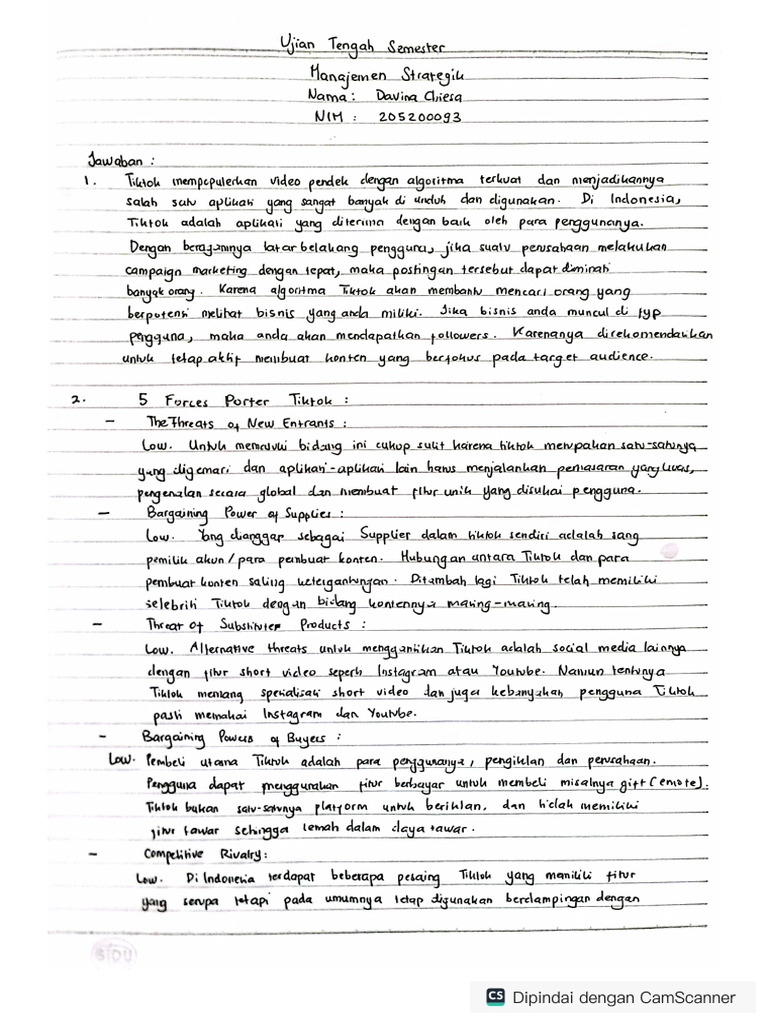 Ujian Tengah Semester
Manajemen Strategik
Nama : Davina Chiesa
NIM : 205200093
Jawaban :
1. Tiktok mempopulerkan video pendek dengan algoritma terkuat dan menjadikannya
salah satu aplikasi yang sangat banyak di unduh dan digunakan. Di Indonesia,
Tiktok adalah aplikasi yang diterima dengan baik oleh para penggunanya.
Dengan beragamnya latar belakang pengguna, jika suatu perusahaan melakukan
campaign marketing dengan tepat, maka postingan tersebut dapat diminati
banyak orang. Karena algoritma Tiktok akan membantu mencari orang yang
berpotensi melihat bisnis yang anda miliki. Jika bisnis anda muncul di fyp
pengguna, maka anda akan mendapatkan followers. Karenanya direkomendasikan
untuk tetap aktif membuat konten yang berfokus pada target audience.
2. 5 Forces Porter Tiktok :
- The Threats of New Entrants :
Low. Untuk memasuki bidang ini cukup sulit karena tiktok merupakan satu-satunya
yang digemari dan aplikasi-aplikasi lain harus menjalankan pemasaran yang luas,
pengenalan secara global dan membuat fitur unik yang disukai pengguna.
- Bargaining Power of Supplies :
Low. Yang dianggap sebagai Supplier dalam tiktok sendiri adalah sang
pemilik akun / para pembuat konten. Hubungan antara Tiktok dan para
pembuat konten saling ketergantungan. Ditambah lagi Tiktok telah memiliki
selebriti Tiktok dengan bidang kontennya masing-masing.
- Threat of Substitutes Products :
Low. Alternative threats untuk menggantikan Tiktok adalah social media lainnya
dengan fitur short video seperti Instagram atau Youtube. Namun tentunya
Tiktok menang spesialisasi short video dan juga kebanyakan pengguna Tiktok
pasti memakai Instagram dan Youtube.
- Bargaining Powers of Buyers :
Low. Pembeli utama Tiktok adalah para penggunanya, pengiklan dan perusahaan.
Pengguna dapat menggunakan fitur berbayar untuk membeli misalnya gift (emote).
Tiktok bukan satu-satunya platform untuk beriklan, dan tidak memiliki
fitur tawar sehingga lemah dalam daya tawar.
- Competitive Rivalry :
Low. Di Indonesia terdapat beberapa pesaing Tiktok yang memiliki fitur
yang serupa tetapi pada umumnya tetap digunakan berdampingan dengan
SIDU
CS Dipindai dengan CamScanner